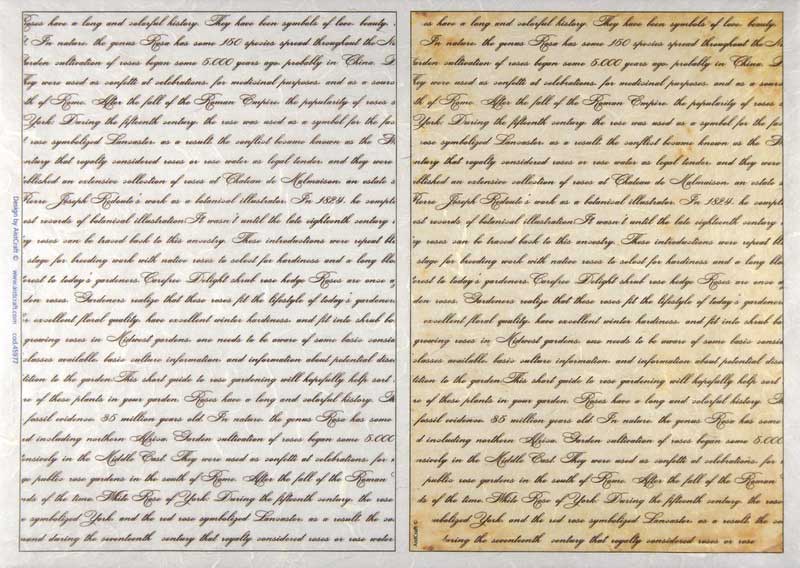 Roses have a long and colorful history. They have been symbols of love, beauty,
In nature, the genus Rosa has some 150 species spread throughout the
Garden cultivation of roses began some 5,000 years ago, probably in China.
They were used as confetti at celebrations, for medicinal purposes, and as a
of Rome. After the fall of the Roman Empire, the popularity of roses
York. During the fifteenth century, the rose was used as a symbol for the
rose symbolized Lancaster, as a result, the conflict became known as the
that royalty considered roses or rose water as legal tender, and they were
an extensive collection of roses at Chateau de Malmaison, an estate
Pierre Joseph Redoute's work as a botanical illustrator. In 1824, he
records of botanical illustration. It wasn't until the late eighteenth century
roses can be traced back to this ancestry. These introductions were repeat
stage for breeding work with native roses to select for hardiness and a long
to today's gardeners. Carefree Delight shrub rose hedge Roses are once
roses. Gardeners realize that these roses fit the lifestyle of today's gardeners
excellent floral quality, have excellent winter hardiness, and fit into shrub
growing roses in Midwest gardens, one needs to be aware of some basic
classes available, basic culture information, and information about potential
to the garden. This short guide to rose gardening will hopefully help sort
of these plants in your garden. Roses have a long and colorful history.
fossil evidence, 35 million years old. In nature, the genus Rosa has some
including northern Africa. Garden cultivation of roses began some 5,000
in the Middle East. They were used as confetti at celebrations, for
public rose gardens in the south of Rome. After the fall of the Roman
of the time. White Rose of York. During the fifteenth century, the rose
symbolized York, and the red rose symbolized Lancaster, as a result, the
during the seventeenth century that royalty considered roses or rose water
Design by AistCraft © www.aistcraft.com cod.45977
is have a long and colorful history. They have been symbols of love, beauty,
In nature, the genus Rosa has some 150 species spread throughout the
cultivation of roses began some 5,000 years ago, probably in China.
They were used as confetti at celebrations, for medicinal purposes, and as a
of Rome. After the fall of the Roman Empire, the popularity of roses
York. During the fifteenth century, the rose was used as a symbol for the
rose symbolized Lancaster, as a result, the conflict became known as the
that royalty considered roses or rose water as legal tender, and they were
an extensive collection of roses at Chateau de Malmaison, an estate
Pierre Joseph Redoute's work as a botanical illustrator. In 1824, he
records of botanical illustration. It wasn't until the late eighteenth century
roses can be traced back to this ancestry. These introductions were repeat
stage for breeding work with native roses to select for hardiness and a long
to today's gardeners. Carefree Delight shrub rose hedge Roses are once
roses. Gardeners realize that these roses fit the lifestyle of today's gardeners
excellent floral quality, have excellent winter hardiness, and fit into shrub
growing roses in Midwest gardens, one needs to be aware of some basic
classes available, basic culture information, and information about potential
to the garden. This short guide to rose gardening will hopefully help sort
of these plants in your garden. Roses have a long and colorful history.
fossil evidence, 35 million years old. In nature, the genus Rosa has some
including northern Africa. Garden cultivation of roses began some 5,000
in the Middle East. They were used as confetti at celebrations, for
public rose gardens in the south of Rome. After the fall of the Roman
of the time. White Rose of York. During the fifteenth century, the rose
York, and the red rose symbolized Lancaster, as a result, the
during the seventeenth century that royalty considered roses or rose